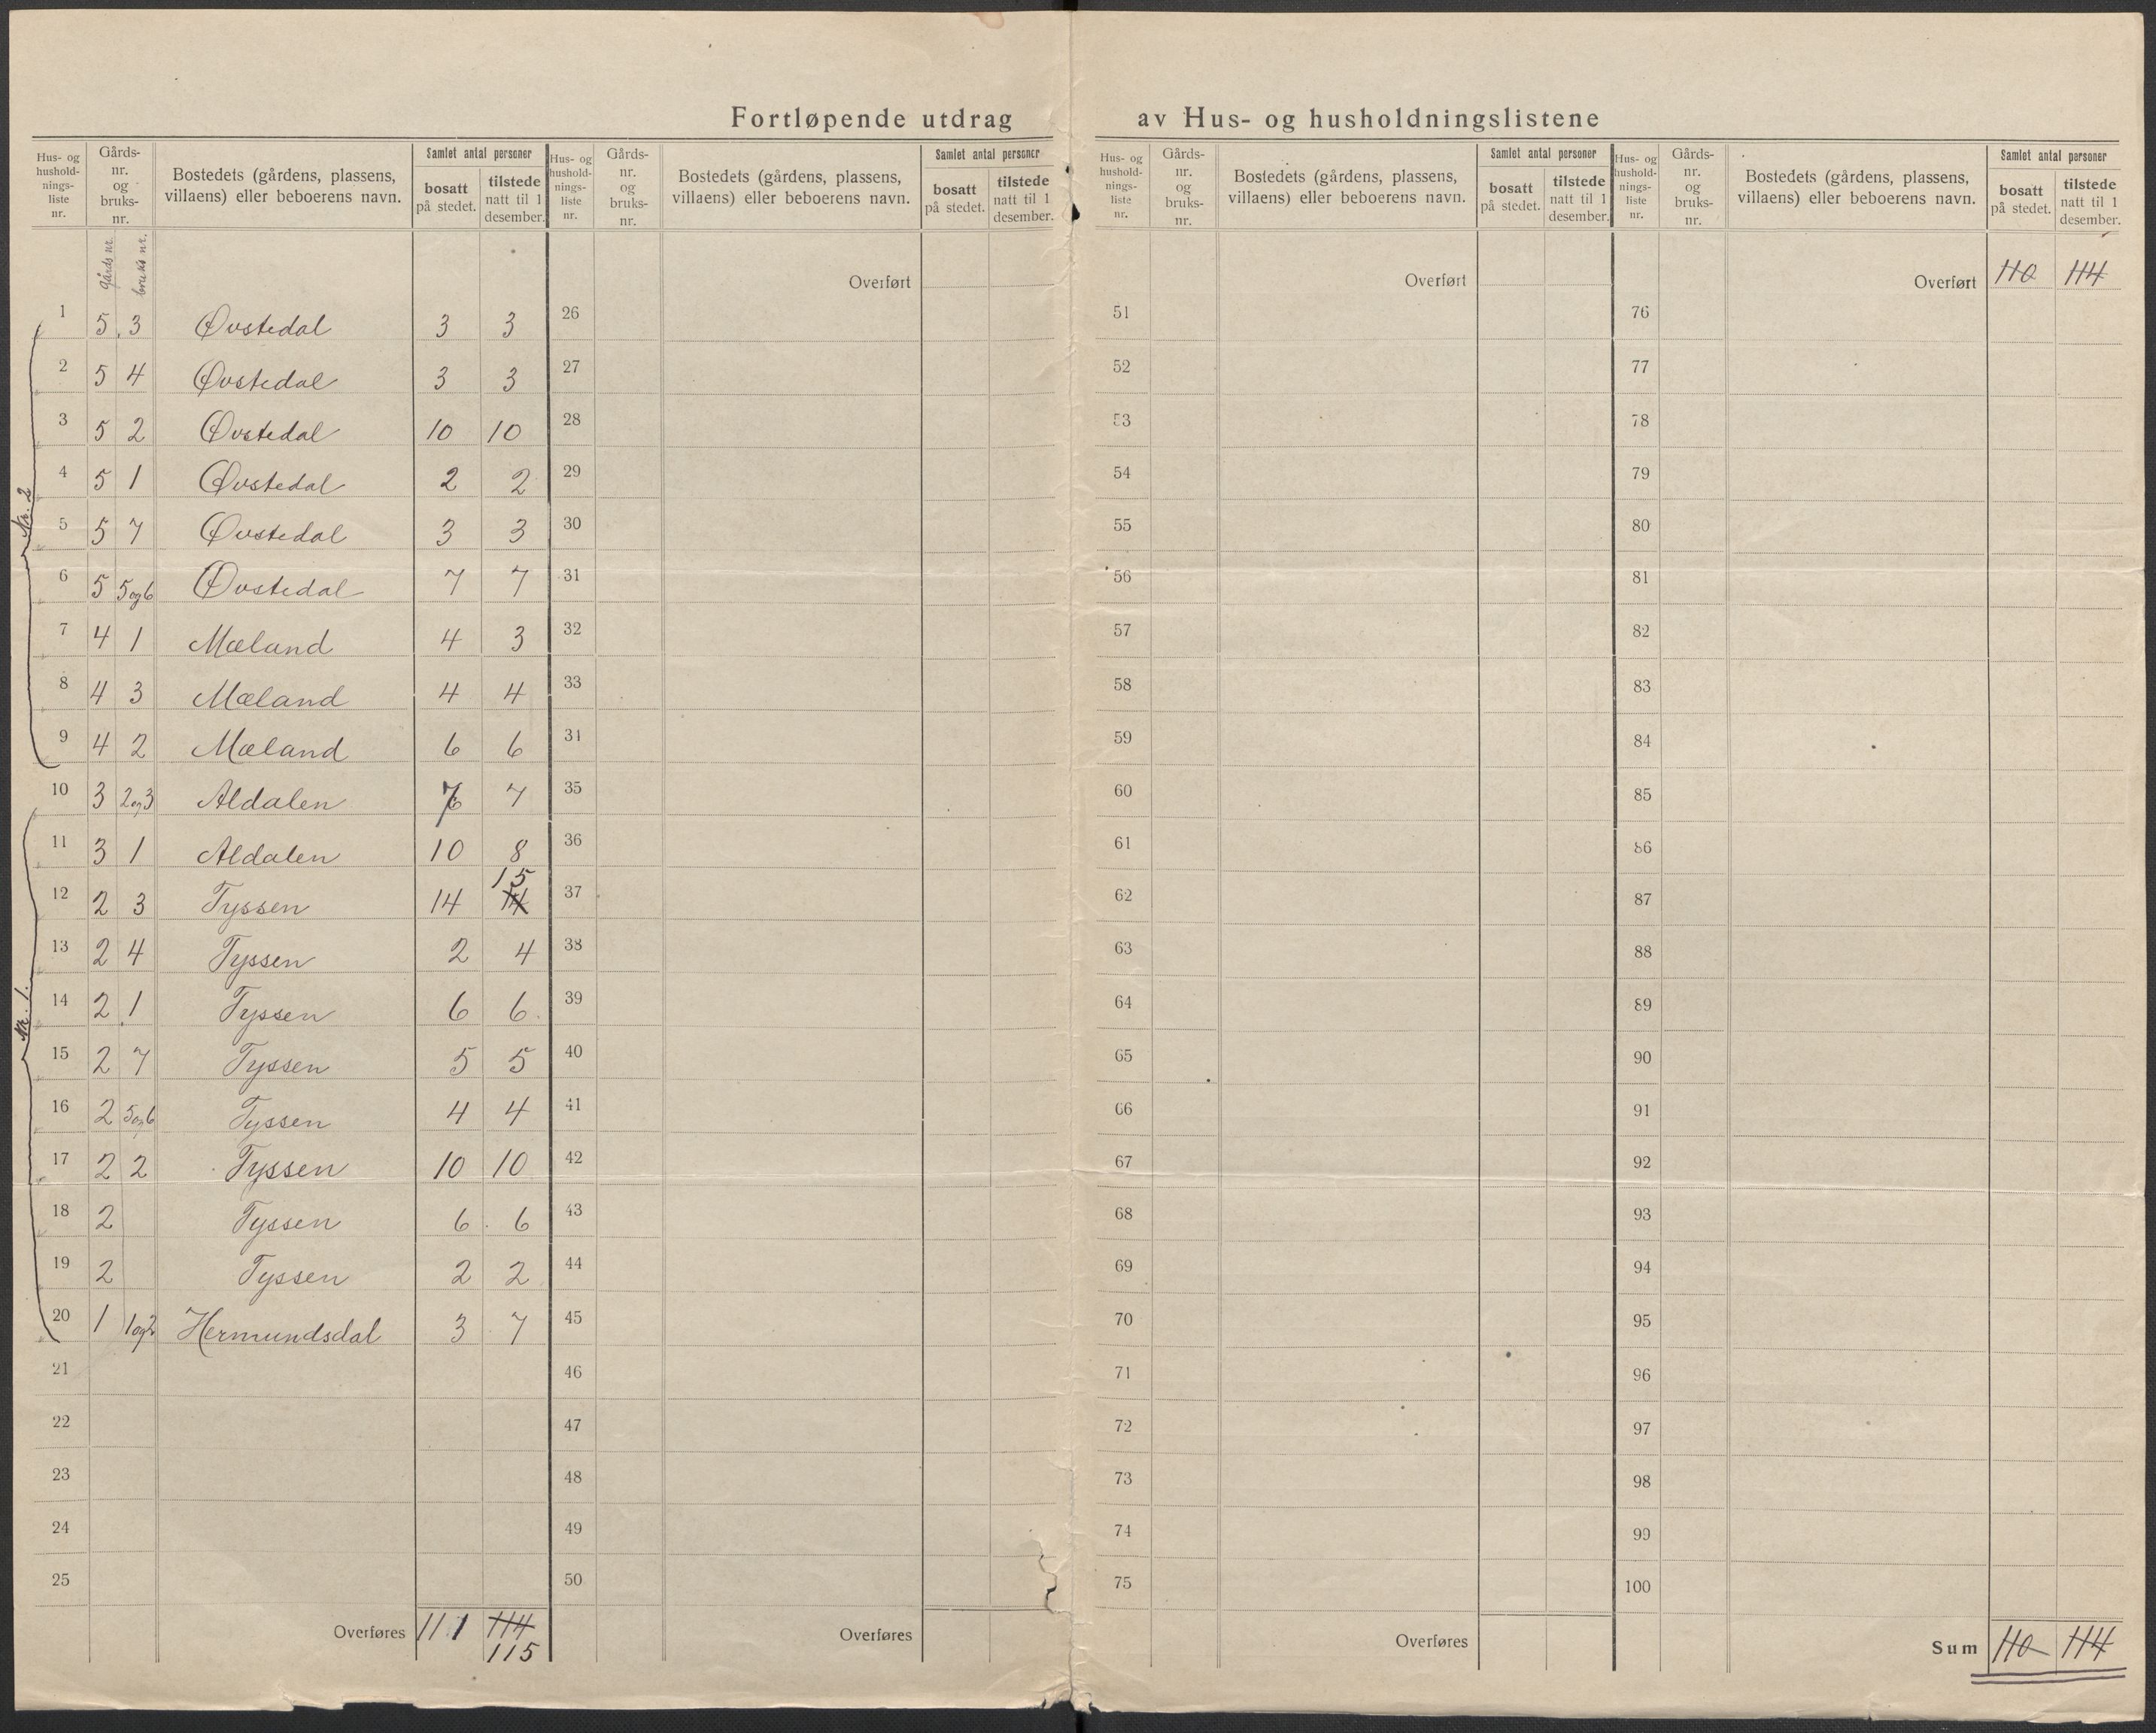 Fortløpende utdrag av Hus- og husholdningslistene
Hus- og hushold-nings-liste nr. Gårds-nr. og bruks-nr. Bostedets (gårdens, plassens, villaens) eller beboerens navn. Samlet antal personer bosatt på stedet. tilstede natt til 1 desember.
Hus- og hushold-nings-liste nr. Gårds-nr. og bruks-nr. Bostedets (gårdens, plassens, villaens) eller beboerens navn. Samlet antal personer bosatt på stedet. tilstede natt til 1 desember.
Hus- og hushold-nings-liste nr. Gårds-nr. og bruks-nr. Bostedets (gårdens, plassens, villaens) eller beboerens navn. Samlet antal personer bosatt på stedet. tilstede natt til 1 desember.
Hus- og hushold-nings-liste nr. Gårds-nr. og bruks-nr. Bostedets (gårdens, plassens, villaens) eller beboerens navn. Samlet antal personer bosatt på stedet. tilstede natt til 1 desember.
Gårds nr. bruks nr.
Nr. 2
1 5 3 Øvstedal 3 3
2 5 4 Øvstedal 3 3
3 5 2 Øvstedal 10 10
4 5 1 Øvstedal 2 2
5 5 7 Øvstedal 3 3
6 5 5og6 Øvstedal 7 7
7 4 1 Mæland 4 3
8 4 3 Mæland 4 4
9 4 2 Mæland 6 6
Nr. 1.
10 3 2og3 Aldalen 7 7
11 3 1 Aldalen 10 8
12 2 3 Tyssen 14 14 15
13 2 4 Tyssen 2 4
14 2 1 Tyssen 6 6
15 2 7 Tyssen 5 5
16 2 5og6 Tyssen 4 4
17 2 2 Tyssen 10 10
18 2 Tyssen 6 6
19 2 Tyssen 2 2
20 1 1og2 Hermundsdal 3 7
21
22
23
24
25
Overføres 111 114
115
Overført
26
27
28
29
30
31
32
33
34
35
36
37
38
39
40
41
42
43
44
45
46
47
48
49
50
Overføres
Overført
51
52
53
54
55
56
57
58
59
60
61
62
63
64
65
66
67
68
69
70
71
72
73
74
75
Overføres
Overført 110 114
76
77
78
79
80
81
82
83
84
85
86
87
88
89
90
91
92
93
94
95
96
97
98
99
100
Sum 110 114